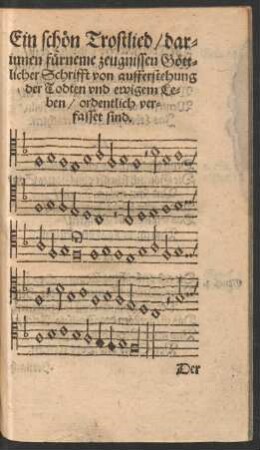 Ein schön Trostlied / dar-
innen fürneme zeugnissen Gött-
licher Schrifft von aufferstehung
der Todten vnd ewigem Le-
ben / ordentlich ver-
fasset sind.
Der